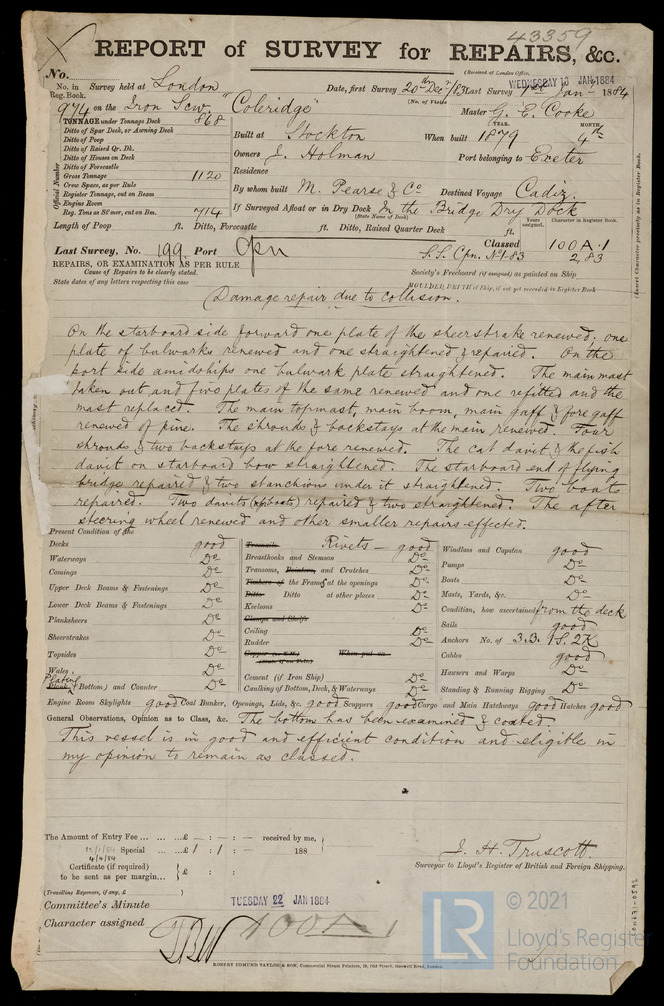 43359
REPORT of SURVEY for REPAIRS, &c.
(Received at London Office,
WEDNESDAY 16 JAN 1884
No.
No. in Survey held at London Date, first Survey 20th Decr /83 Last Survey 1st Jany 1884
Reg. Book. (No. of Visits
974 on the Iron Scw. "Coleridge" Master G. E. Cooke
TONNAGE under Tonnage Deck 868
Ditto of Spar Deck, or Awning Deck
Ditto of Poop
Ditto of Raised Qr. Dk.
Ditto of Houses on Deck
Ditto of Forecastle
Gross Tonnage 1120
Crew Space, as per Rule
Register Tonnage, cut on Beam
Engine Room
Reg. Tons as St'mer, cut on Bm. 714
Official Number
Built at Stockton When built YEAR. 1879 MONTH. 4th
Owners J. Holman Port belonging to Exeter
Residence
By whom built M. Pearse & Co Destined Voyage Cadiz
If Surveyed Afloat or in Dry Dock In the Bridge Dry Dock
(State Name of Dock)
Length of Poop ft. Ditto, Forecastle ft. Ditto, Raised Quarter Deck ft.
Years assigned. Character in Register Book.
Last Survey, No. 199 Port Cpn Classed 100A.1
S.S. Cpn. No.1-83 2,83
REPAIRS, OR EXAMINATION AS PER RULE
Cause of Repairs to be clearly stated.
State dates of any letters respecting this case
Society's Freeboard (if assigned) as painted on Ship
MOULDED DEPTH of Ship, if not yet recorded in Register Book
(Insert Character precisely as in Register Book.
Damage repair due to collision.
On the starboard side forward one plate of the sheerstrake renewed; one
plate of bulwarks renewed and one straightened & repaired. On the
port side amidships one bulwark plate straightened. The main mast
taken out and five plates of the same renewed and one refitted and the
mast replaced. The main topmast, main boom, main gaff & fore gaff
renewed of pine. The shrouds & backstays at the main renewed. Four
shrouds & two backstays at the fore renewed. The cat davit & the fish
davit on starboard bow straightened. The starboard end of flying
bridge repaired & two stanchions under it straightened. Two boats
repaired. Two davits (for boats) repaired & two straightened. The after
steering wheel renewed and other smaller repairs effected.
Present Condition of the
Decks good
Waterways Do
Comings Do
Upper Deck Beams & Fastenings Do
Lower Deck Beams & Fastenings Do
Planksheers Do
Sheerstrakes Do
Topsides Do
Wales Do
Plating
Plank (Bottom) and Counter Do
Treenails Rivets — good
Breasthooks and Stemson Do
Transoms, Pointers, and Crutches Do
Timbers of the Frames at the openings Do
Ditto Ditto at other places Do
Keelsons Do
Clamps and Shelfs
Ceiling Do
Rudder Do
Copper (or Y.M.) When put on
Cement (if Iron Ship) Do
Caulking of Bottom, Deck, & Waterways Do
Windlass and Capstan good
Pumps Do
Boats Do
Masts, Yards, &c. Do
Condition, how ascertained from the deck
Sails good
Anchors No. of 3.3. 1S. 2K
Cables good
Hawsers and Warps Do
Standing & Running Rigging Do
Engine Room Skylights good Coal Bunker, Openings, Lids, &c. good Scuppers good Cargo and Main Hatchways good Hatches good
General Observations, Opinion as to Class, &c. The bottom has been examined & coated.
This vessel is in good and efficient condition and eligible in
my opinion to remain as classed.
The Amount of Entry Fee ... ... ...£ — : — : — received by me,
Special ... ...£ 1 : 1 : — 188
4/4/84
Certificate (if required) £ : :
to be sent as per margin...
(Travelling Expenses, if any, £ )
J. H. Truscott.
Surveyor to Lloyd's Register of British and Foreign Shipping.
Committee's Minute TUESDAY 22 JAN 1884
Character assigned 100A1
ROBERT EDMUND TAYLOR & SON, Commercial Steam Printers, 19, Old Street, Goswell Road, London.
LR
© 2021
Lloyd's Register
Foundation